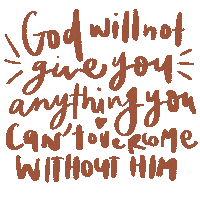 God will not
give you
anything you
can't overcome
WITHOUT HIM